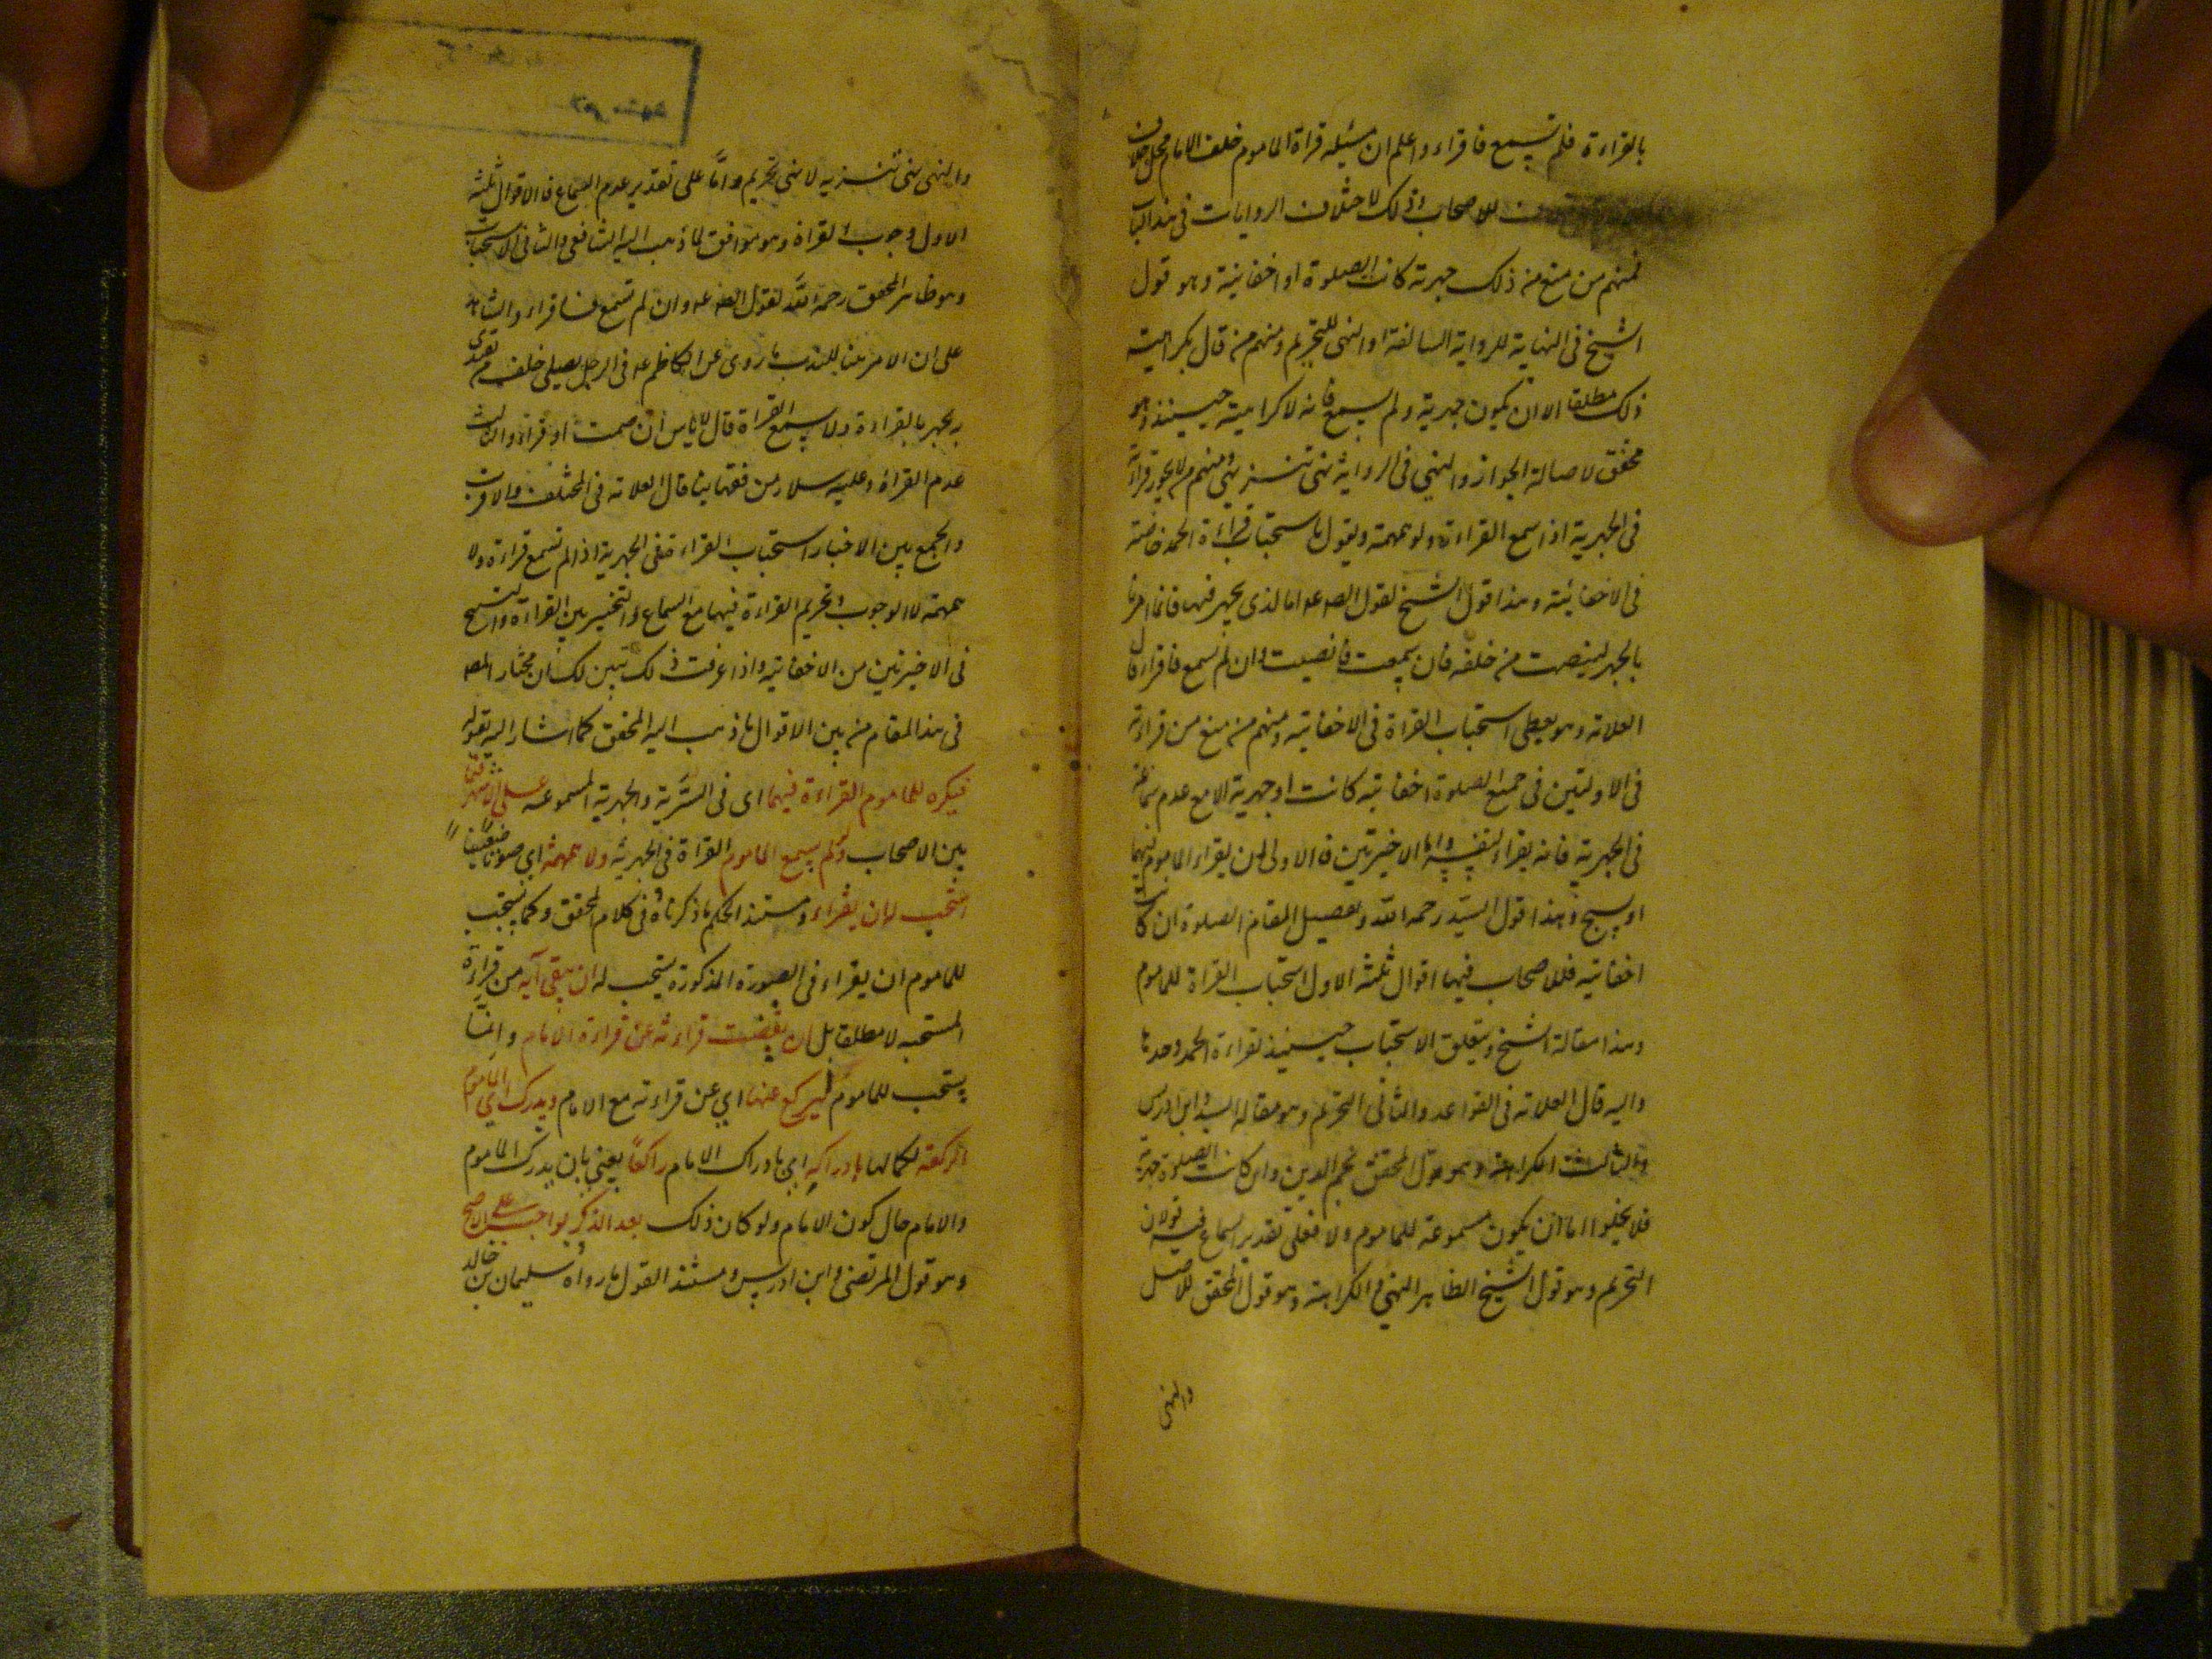 بالقراءة فلم تسمع فاقراء واعلم ان مسئلة قراة الماموم خلف الامام محل خلاف
للاصحاب وذلك لاختلاف الروايات فى هذا الباب
فمنهم من منع من ذلك جهرية كانت الصلوة او اخفاتية وهو قول
الشيخ فى النهاية للرواية السالفة اوالنهى للتحريم ومنهم من قال بكراهية
ذلك مطلقا الا ان تكون جهرية ولم يسمع فانه لا كراهية حينئذ وهو
محقق لاصالة الجواز والنهي فى الرواية نهى تنزيهى ومنهم من لا يجوز قراءة
فى الجهرية اذا سمع القراءة ولو همهمة ويقول باستحباب قراءة الحمد خاصة
فى الاخفاتية وهذا قول الشيخ لقول الصه عه اما لذى يجهر فيها فانما امرنا
بالجهر لينصت من خلفه فان سمعت فانصت وان لم تسمع فاقراء قال
العلامه وهو يعطى استحباب القراة فى الاخفاتية ومنهم من منع من قراءة
فى الاولتين فى جميع الصلوة اخفاتية كانت اوجهرية الا مع عدم سماعه
فى الجهرية فانه يقراء لنفسه واما الاخيرتين فالاولى ان يقراء الماموم فيهما
او يسبح وهذا قول السيد رحمه الله وتفصيل المقام الصلوة ان كانت
اخفاتية فللاصحاب فيها اقوال ثلثة الاول استحباب القراة للماموم
وهذا مقالة الشيخ ويتعلق الاستحباب حينئذ بقراءة الحمد وحدها
واليه قال العلامه فى القواعد والثانى التحريم وهو مقالة السيد وابن ادريس
والثالث الكراهة وهو قول المحقق نجم الدين وان كانت الصلوة جهرية
فلا يخلوا اما ان يكون مسموعة للماموم ولا فعلى تقدير السماع فيه قولان
التحريم وهو قول الشيخ الظاهر النهي والكراهة وهو قول المحقق للاصل
والنهى
والنهى نهى تنزيه لا نهى تحريم واما على تقدير عدم السماع فالاقوال ثلثة
الاول وجوب القراة وهو موافق لما ذهب اليه الشافعى والثانى الاستحباب
وهو ظاهر المحقق رحمه الله لقول الصه عه وان لم تسمع فاقراء والشاهد
على ان الامر هنا للندب ما روى عن الكاظم عه فى الرجل يصلى خلف من يقتدى
به يجهر بالقراءة ولا يسمع القراة قال لا باس ان صمت او قراء والثالث
عدم القراة وعليه سلار من فقهاينا قال العلامه فى المختلف والاقرب
والجمع بين الاخبار استحباب القراءة فى الجهرية اذا لم تسمع قراءة ولا
همهمة لا الوجوب وتحريم القراءة فيها مع السماع والتخيير بين القراءة والتسبيح
فى الاخيرتين من الاخفاتية واذا عرفت ذلك تبين لك ان مختار المص
فى هذا المقام من بين الاقوال ما ذهب اليه المحقق كما اشار اليه بقوله
فيكره للماموم القراءة فيهما اى فى السرية والجهرية المسموعه على الاشهر
بين الاصحاب ولم يسمع الماموم القراة فى الجهرية ولا همهمة اى صوتا خفيفا
استحب له ان يقراء ومستند الحكم ما ذكرناه فى كلام المحقق وكما يستحب
للماموم ان يقراء فى الصورة المذكورة يستحب له ان يبقى آية من قراءة
المستحبه لا مطلقا بل ان نقصت قراءته عن قراءة الامام
يستحب للماموم ليركع عنها اى عن قراءته مع الامام ويدرك اى الماموم
الركعة لكمالها بادراكه اى بادراك الامام راكعا يعنى بان يدرك الماموم
والامام حال كون الامام ولو كان ذلك بعد الذكر الواجب على الاصح
وهو قول المرتضى وابن ادريس ومستند القول ما رواه سليمان بن خالد